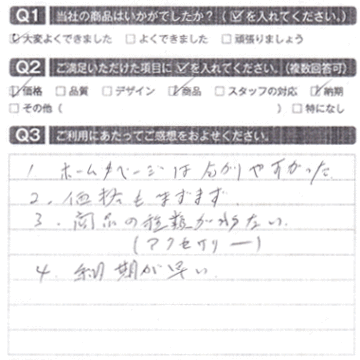 Q1 当社の商品はいかがでしたか？（☑を入れてください。）
☑大変よくできました □よくできました □頑張りましょう
Q2 ご満足いただけた項目に☑を入れてください。（複数回答可）
☑価格 □品質 □デザイン ☑商品 □スタッフの対応 ☑納期
□その他（ ）□特になし
Q3 ご利用にあたってご感想をおよせください。
1 ホームページは分かりやすかった
2. 価格もまずまず
3. 商品の種類が少ない.
(アクセサリー)
4. 納期が早い.